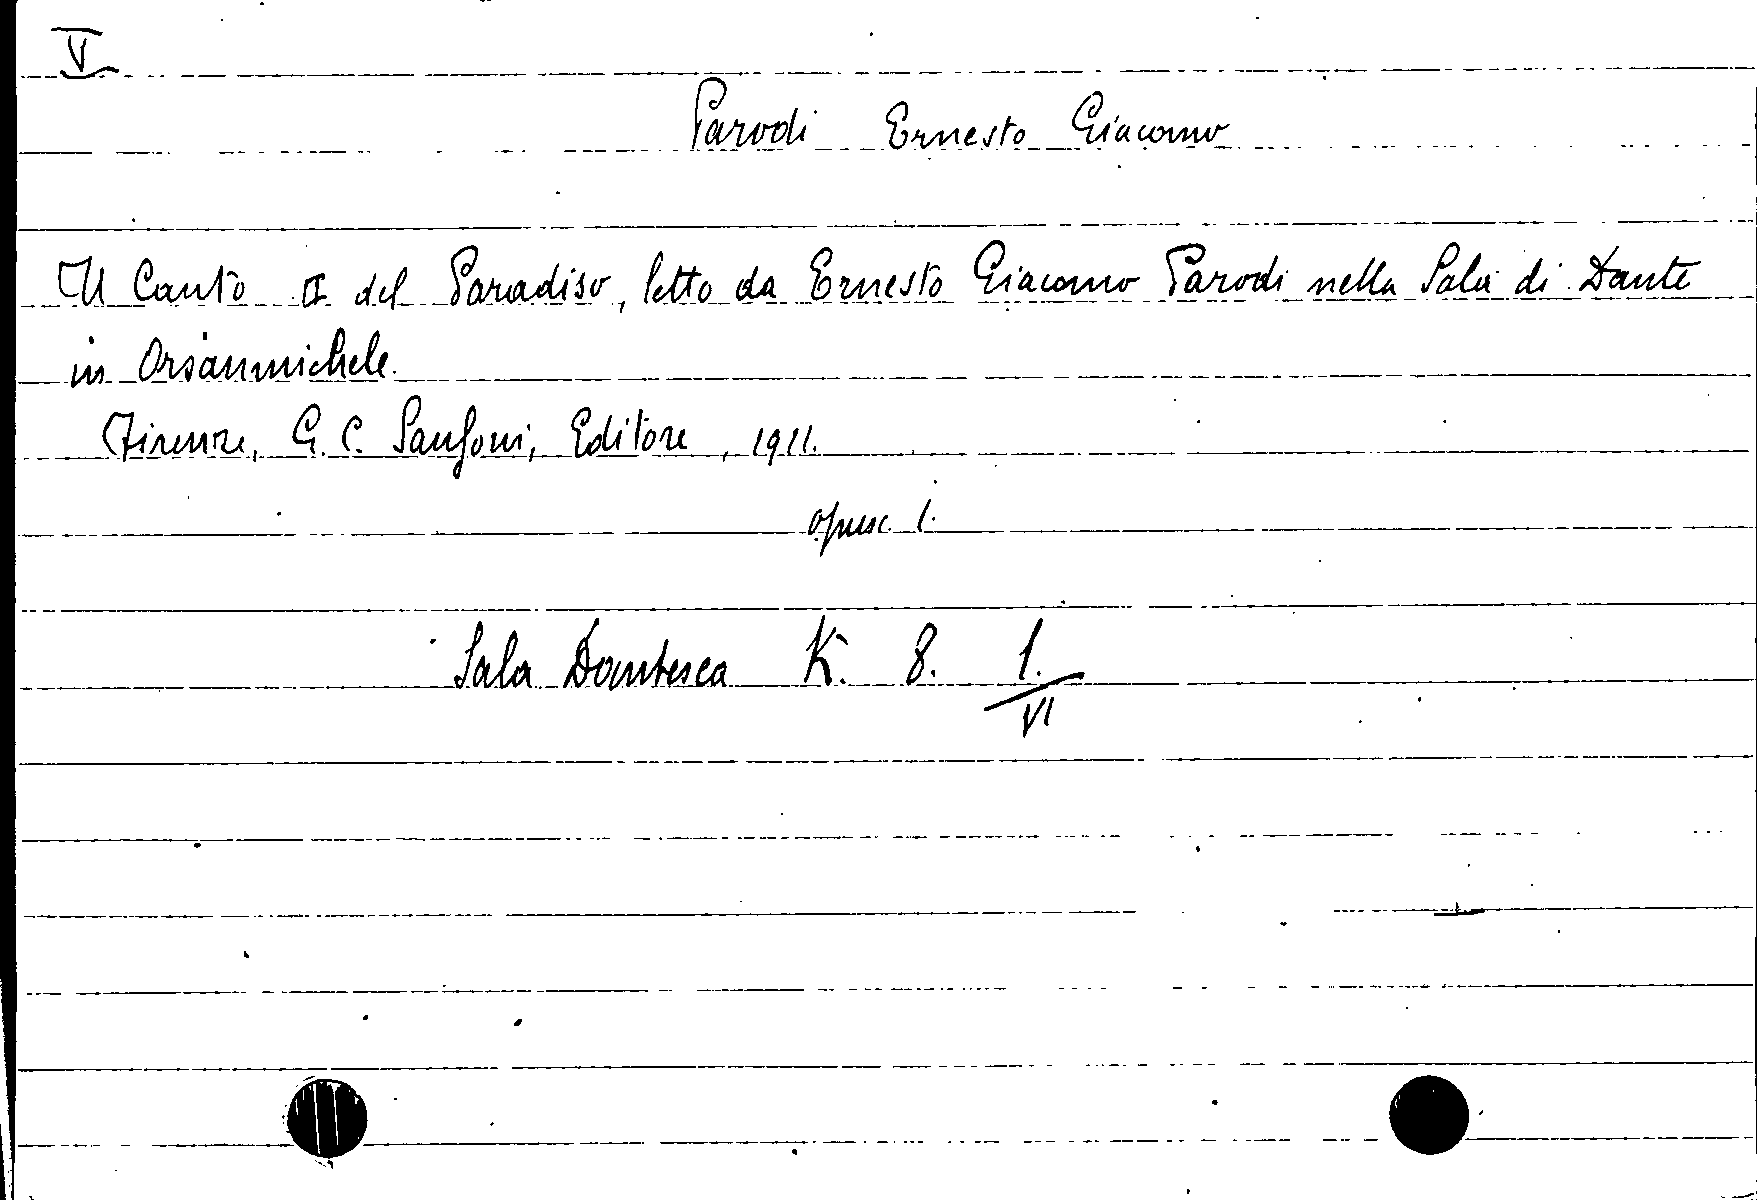 V
Parodi Ernesto Giacomo
Il Canto II del Paradiso, letto da Ernesto Giacomo Parodi nella Sala di Dante
in Orsanmichele.
Firenze, G. C. Sansoni, Editore, 1911.
opusc. 1.
Sala Dantesca K. 8. 1.
VI